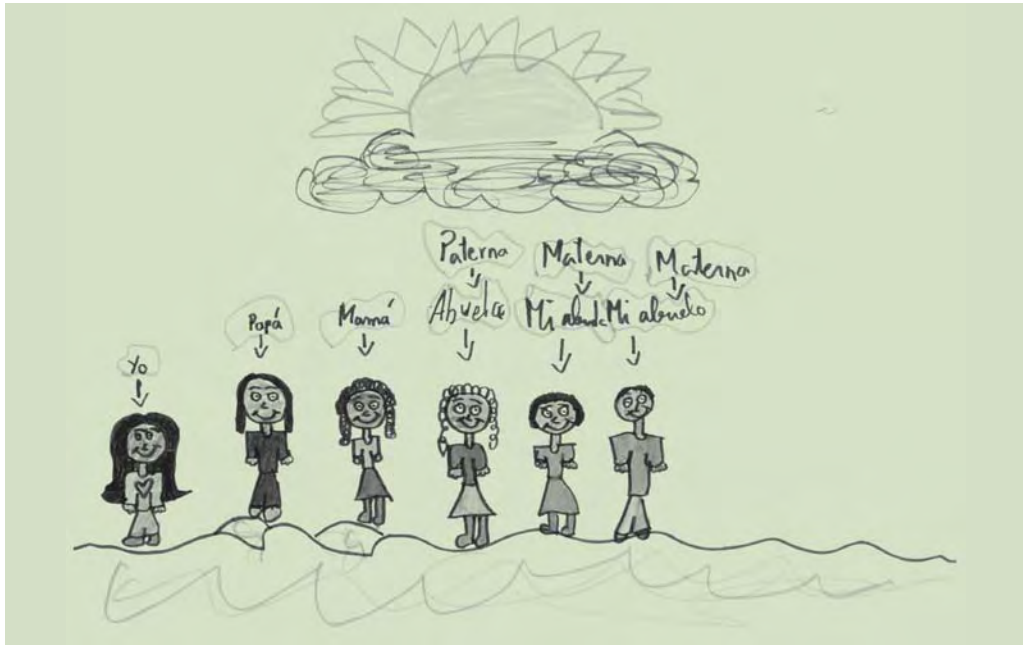 Yo
Papá
Mamá
Paterna
Abuela
Materna
Mi abuela
Materna
Mi abuelo